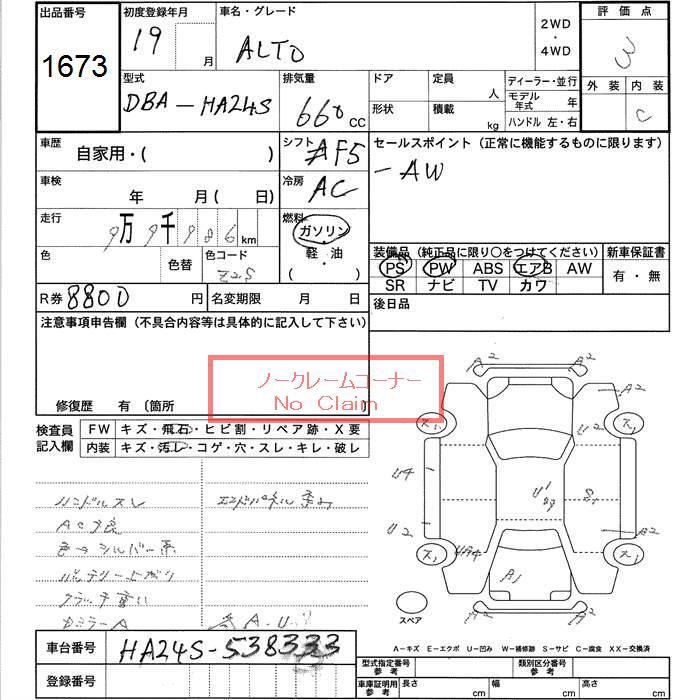 出品番号
1673
初度登録年月
19 月
車名・グレード
ALTO
2WD
・
4WD
評価点
3
外装 内装
C
型式
DBA-HA24S
排気量
660 CC
ドア
形状
定員 人
積載 kg
ディーラー・並行
モデル年式 年
ハンドル 左・右
車歴
自家用・( )
シフト
AF5
セールスポイント (正常に機能するものに限ります)
-AW
車検
年 月( 日)
冷房
AC
走行
9万 9千986km
燃料
ガソリン
・
軽・油
( )
色
色替
色コード
Z2S
装備品 (純正品に限り○をつけてください)
PS PW ABS エアB AW
SR ナビ TV カワ
新車保証書
有・無
R券 8800 円
名変期限 月 日
後日品
注意事項申告欄 (不具合内容等は具体的に記入して下さい)
ノークレームコーナー
No Claim
修復歴 有 〔箇所 〕
検査員
記入欄
FW キズ・飛石・ヒビ割・リペア跡・X要
内装 キズ・汚レ・コゲ・穴・スレ・キレ・破レ
ハンドルスレ
AC不良
色→シルバー系
バッテリー上がり
クラッチ重い
A2
A2
A2
U2
U4
U2
S1
A2
A2
スペア
A-キズ E-エクボ U-凹み W-補修跡 S-サビ C-腐食 XX-交換済
車台番号
HA24S-538333
登録番号
型式指定番号
参考
類別区分番号
参考
車庫証明用
参考
長さ cm
幅 cm
高さ cm